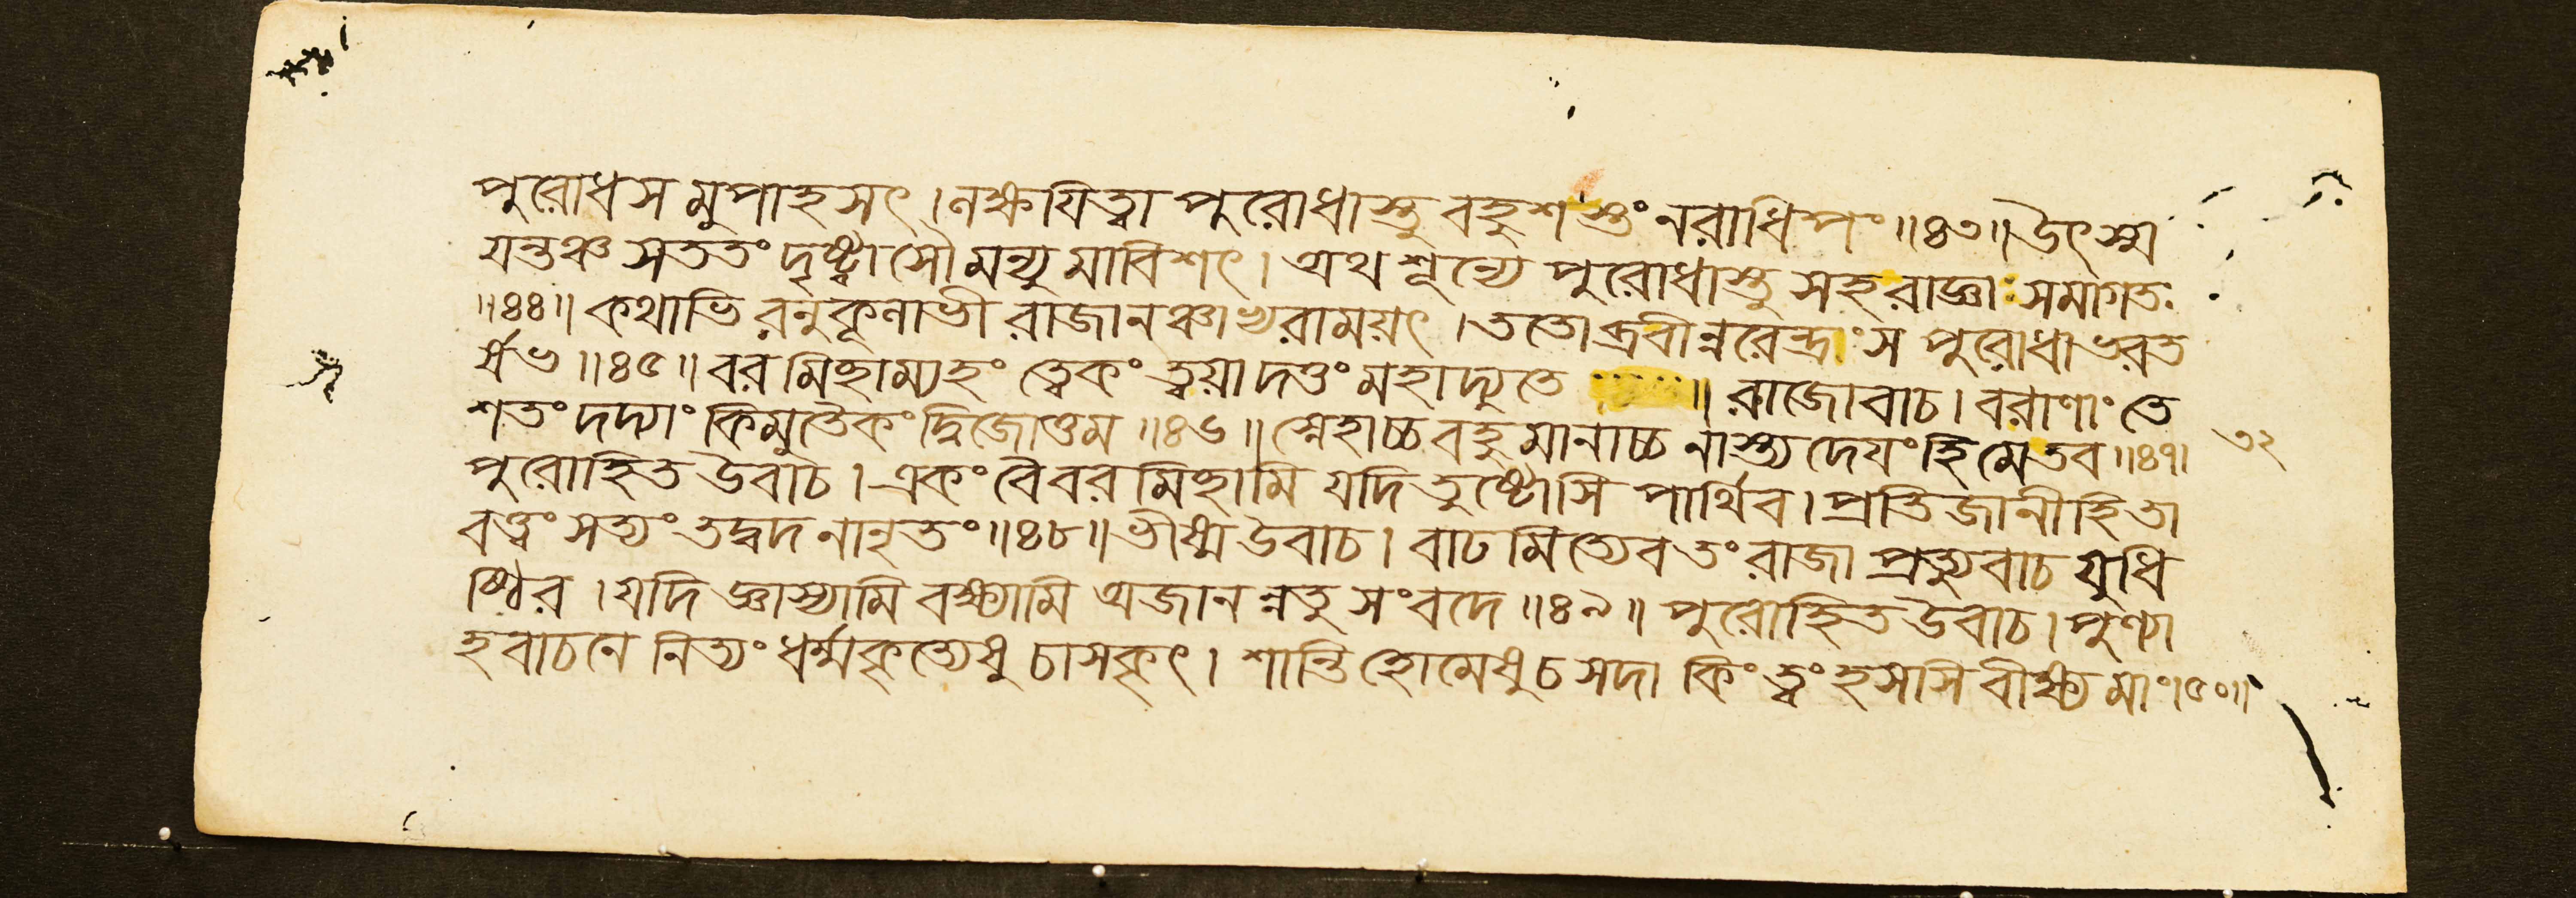 পুরোধসমুপাহসৎ । লক্ষয়িত্বা পুরোধাস্তু বহুশস্তং নরাধিপং ॥৪৩॥ উৎস্ম
যন্তঞ্চ সততং দৃষ্ট্বাসৌ মন্যুমাবিশৎ । অথ শূন্যে পুরোধাস্তু সহ রাজ্ঞা সমাগতঃ
॥৪৪॥ কথাভিরনুকূলাভী রাজানঞ্চাভ্যরাময়ৎ । ততোব্রবীন্নরেন্দ্রং স পুরোধা ভরত
র্ষভ ॥৪৫॥ বরমিচ্ছাম্যহং ত্বেকং ত্বয়া দত্তং মহাদ্যুতে ॥ রাজোবাচ । বরাণাং তে
শতং দদ্যাং কিমুতৈকং দ্বিজোত্তম ॥৪৬॥ স্নেহাচ্চ বহুমানাচ্চ নাস্ত্যদেয়ং হি মে তব ॥৪৭।
৩২
পুরোহিত উবাচ । একং বৈ বরমিচ্ছামি যদি তুষ্টোসি পার্থিব । প্রতিজানীহি তা
বত্ত্বং সত্যং তদ্বদ নানৃতং ॥৪৮॥ ভীষ্ম উবাচ । বাঢমিত্যেব তং রাজা প্রত্যুবাচ যুধি
ষ্ঠির । যদি জ্ঞাস্যামি বক্ষ্যামি অজানন্নতু সংবদে ॥৪৯॥ পুরোহিত উবাচ । পুণ্যা
হবাচনে নিত্যং ধর্ম্মকৃত্যেষু চাসকৃৎ । শান্তিহোমেষু চ সদা কিং ত্বং হসসি বীক্ষ্য মাং ।৫০॥